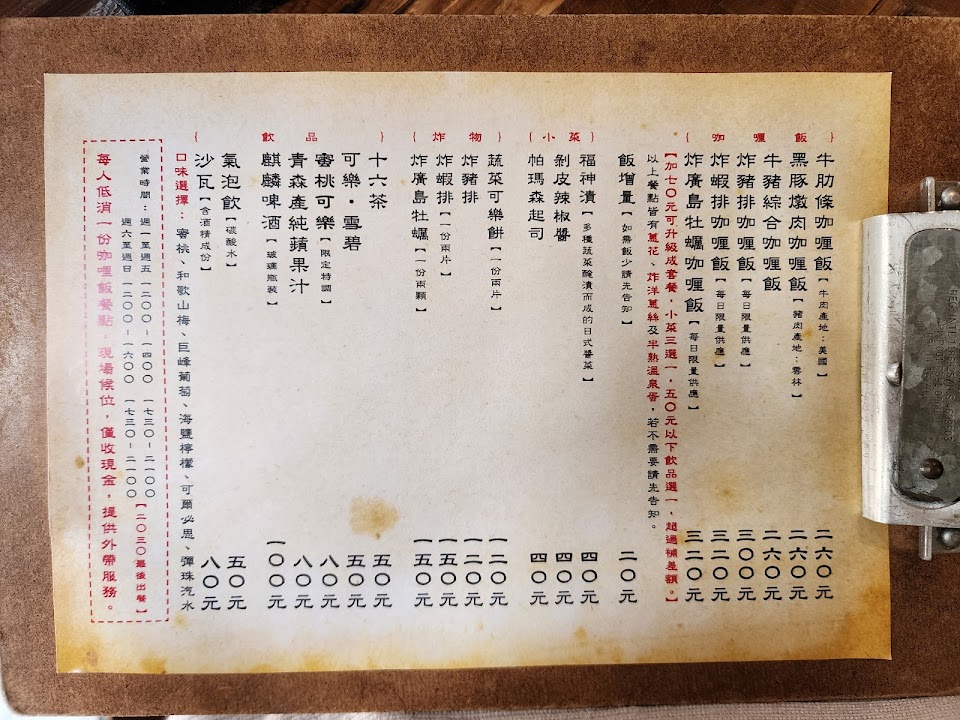 { 咖喱飯 }
牛肋條咖喱飯【牛肉產地：美國】 二六〇元
黑豚燉肉咖喱飯【豬肉產地：雲林】 二六〇元
牛豬綜合咖喱飯 二六〇元
炸豬排咖喱飯【每日限量供應】 三〇〇元
炸蝦排咖喱飯【每日限量供應】 三二〇元
炸廣島牡蠣咖喱飯【每日限量供應】 三二〇元
【加七〇元可升級成套餐，小菜三選一，五〇元以下飲品選一，超過補差額。】
以上餐點皆有蔥花、炸洋蔥絲及半熟溫泉蛋，若不需要請先告知。
飯增量【如需飯少請先告知】 二〇元
{ 小菜 }
福神漬【多種蔬菜醃漬而成的日式醬菜】 四〇元
剝皮辣椒醬 四〇元
帕瑪森起司 四〇元
{ 炸物 }
蔬菜可樂餅【一份兩片】 一二〇元
炸豬排 一二〇元
炸蝦排【一份兩片】 一五〇元
炸廣島牡蠣【一份兩顆】 一五〇元
{ 飲品 }
十六茶 五〇元
可樂・雪碧 五〇元
蜜桃可樂【限定特調】 八〇元
青森產純蘋果汁 八〇元
麒麟啤酒【玻璃瓶裝】 一〇〇元
氣泡飲【碳酸水】 五〇元
沙瓦【含酒精成份】 八〇元
口味選擇：蜜桃、和歌山梅、巨峰葡萄、海鹽檸檬、可爾必思、彈珠汽水
營業時間：週一至週五 一二〇〇－一四〇〇 一七三〇－二一〇〇【二〇三〇最後出餐】
週六至週日 一二〇〇－一六〇〇 一七三〇－二一〇〇
每人低消一份咖喱飯餐點，現場候位，僅收現金，提供外帶服務。